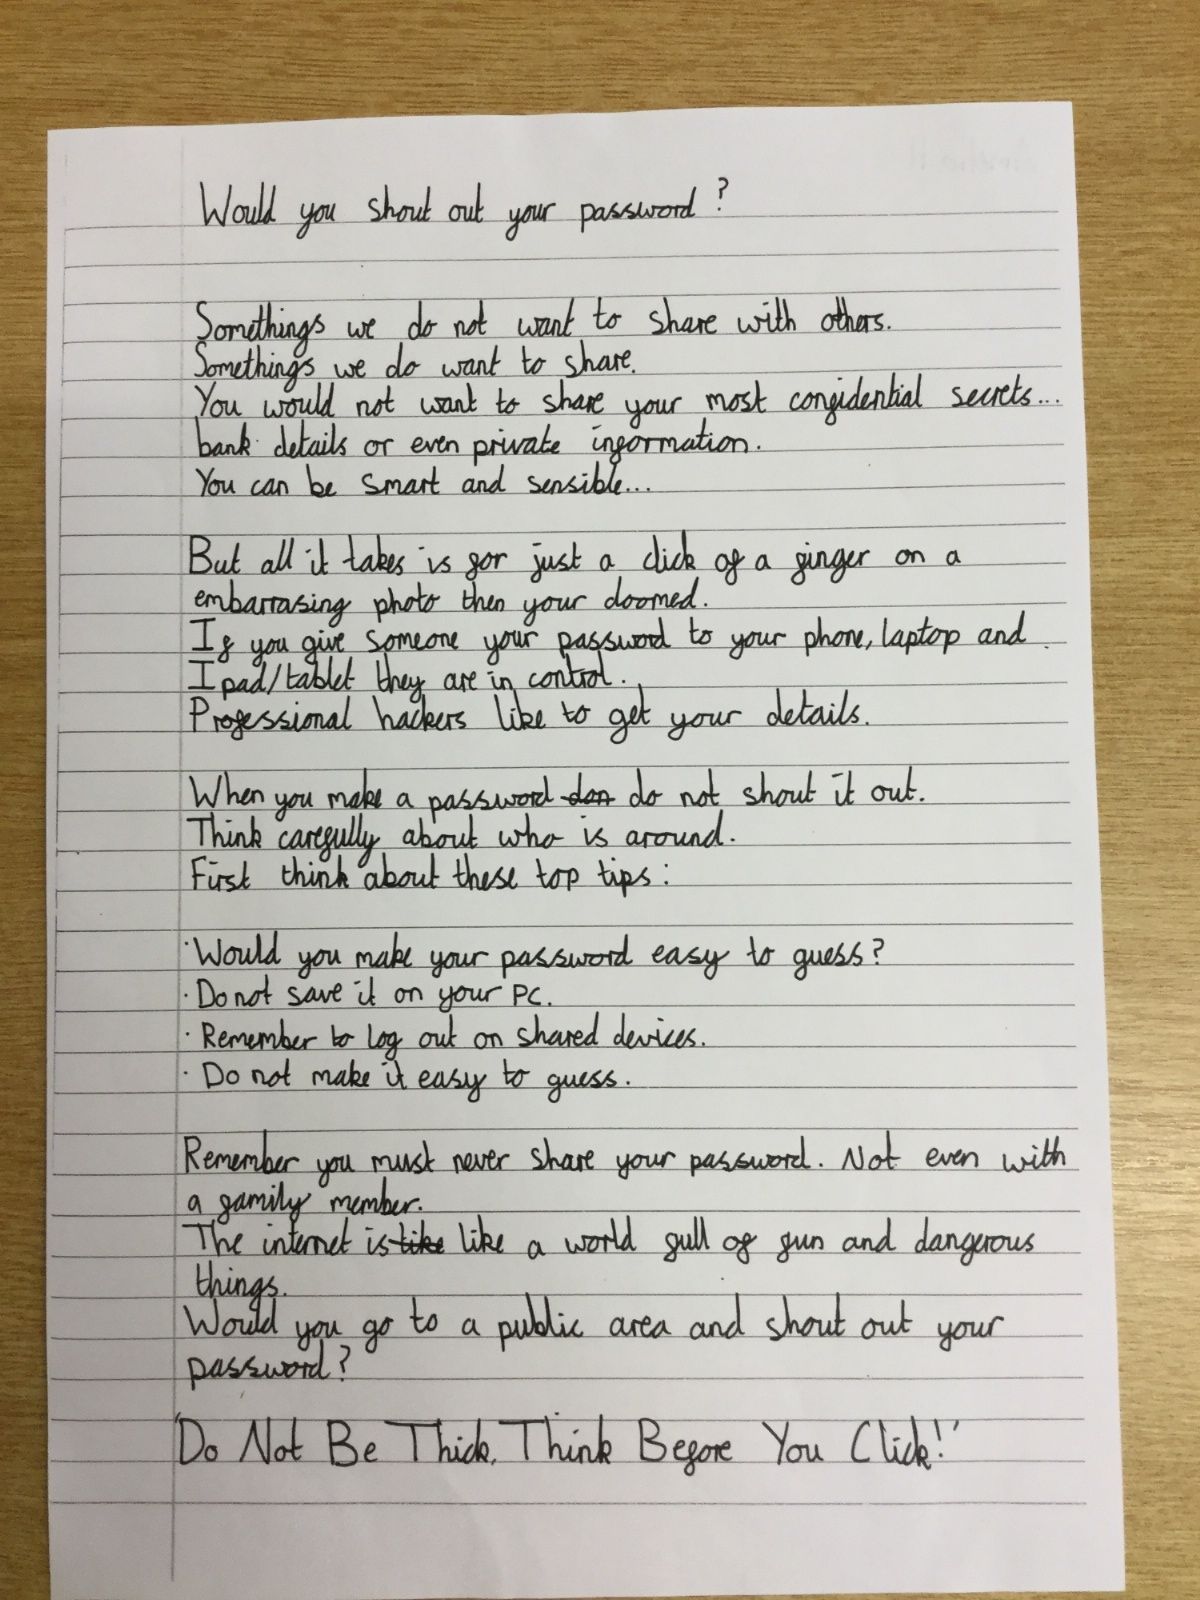 Would you shout out your password?
Somethings we do not want to share with others.
Somethings we do want to share.
You would not want to share your most confidential secrets...
bank details or even private information.
You can be smart and sensible...
But all it takes is for just a click of a finger on a
embarrasing photo then your doomed.
If you give someone your password to your phone, laptop and
Ipad/tablet they are in control.
Professional hackers like to get your details.
When you make a password don do not shout it out.
Think carefully about who is around.
First think about these top tips:
· Would you make your password easy to guess?
· Do not save it on your PC.
· Remember to log out on shared devices.
· Do not make it easy to guess.
Remember you must never share your password. Not even with
a family member.
The internet is like like a world full of fun and dangerous
things.
Would you go to a public area and shout out your
password?
'Do Not Be Thick, Think Before You Click!'